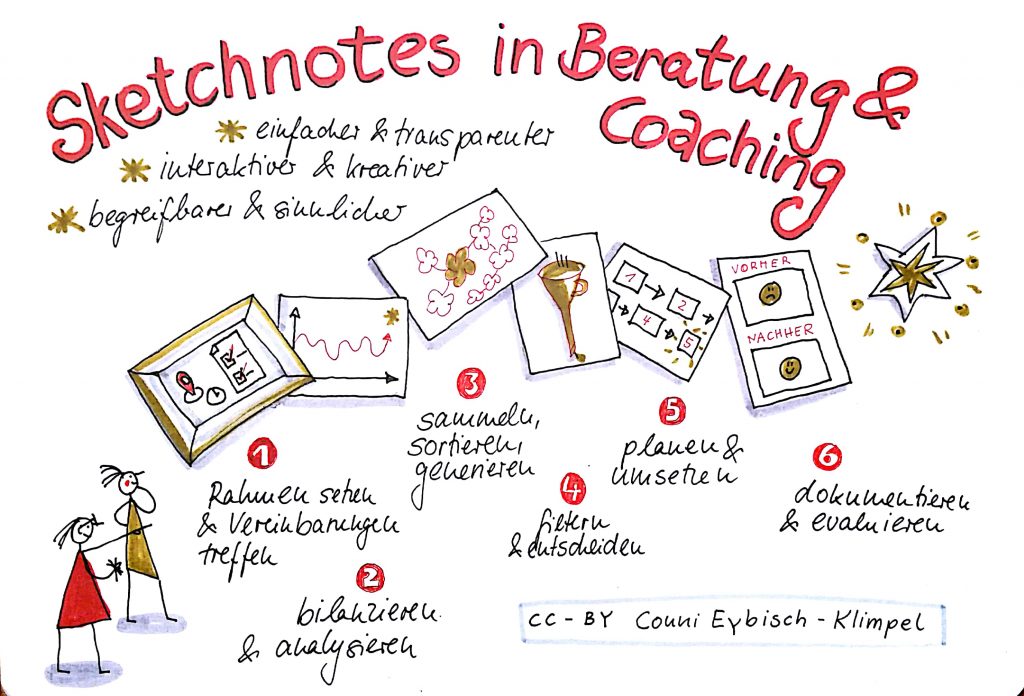 Sketchnotes in Beratung &
Coaching
einfacher & transparenter
interaktiver & kreativer
begreifbarer & sinnlicher
1
Rahmen setzen
& Vereinbarungen
treffen
2
bilanzieren
& analysieren
3
sammeln,
sortieren,
generieren
4
filtern
& entscheiden
1
2
4
5
5
planen &
umsetzen
VORHER
NACHHER
6
dokumentieren
& evaluieren
CC-BY Conni Eybisch-Klimpel